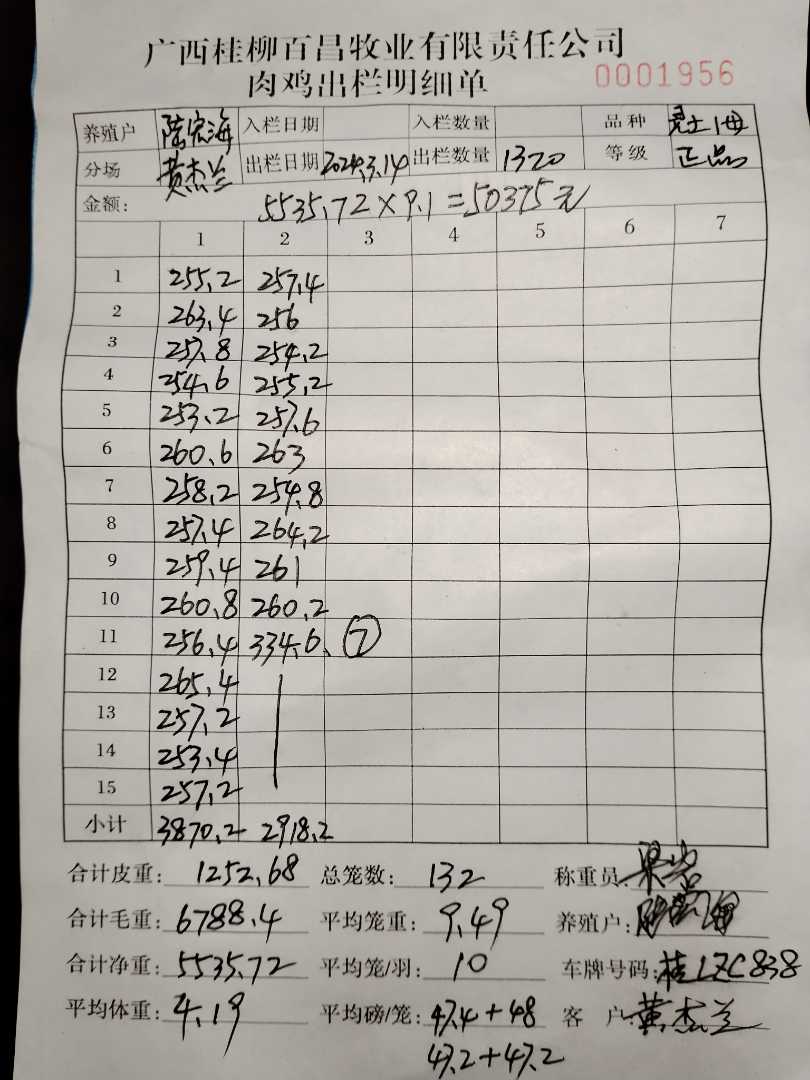 广西桂柳百昌牧业有限责任公司
肉鸡出栏明细单 0001956
养殖户 陆宏海 入栏日期 入栏数量 品种 土1母
分场 黄杰兰 出栏日期 2024.3.14 出栏数量 1320 等级 正品
金额: 5535.72×9.1=50375元
1 2 3 4 5 6 7
1 255.2 257.4
2 263.4 256
3 257.8 254.2
4 254.6 255.2
5 253.2 257.6
6 260.6 263
7 258.2 254.8
8 257.4 264.2
9 259.4 261
10 260.8 260.2
11 256.4 334.6. ⑦
12 265.4
13 257.2
14 253.4
15 257.2
小计 3870.2 2918.2
合计皮重: 1252.68 总笼数: 132 称重员:
合计毛重: 6788.4 平均笼重: 9.49 养殖户:
合计净重: 5535.72 平均笼/羽: 10 车牌号码: 桂LZC838
平均体重: 4.19 平均磅/笼: 47.4+48 客 户: 黄杰兰
47.2+47.2